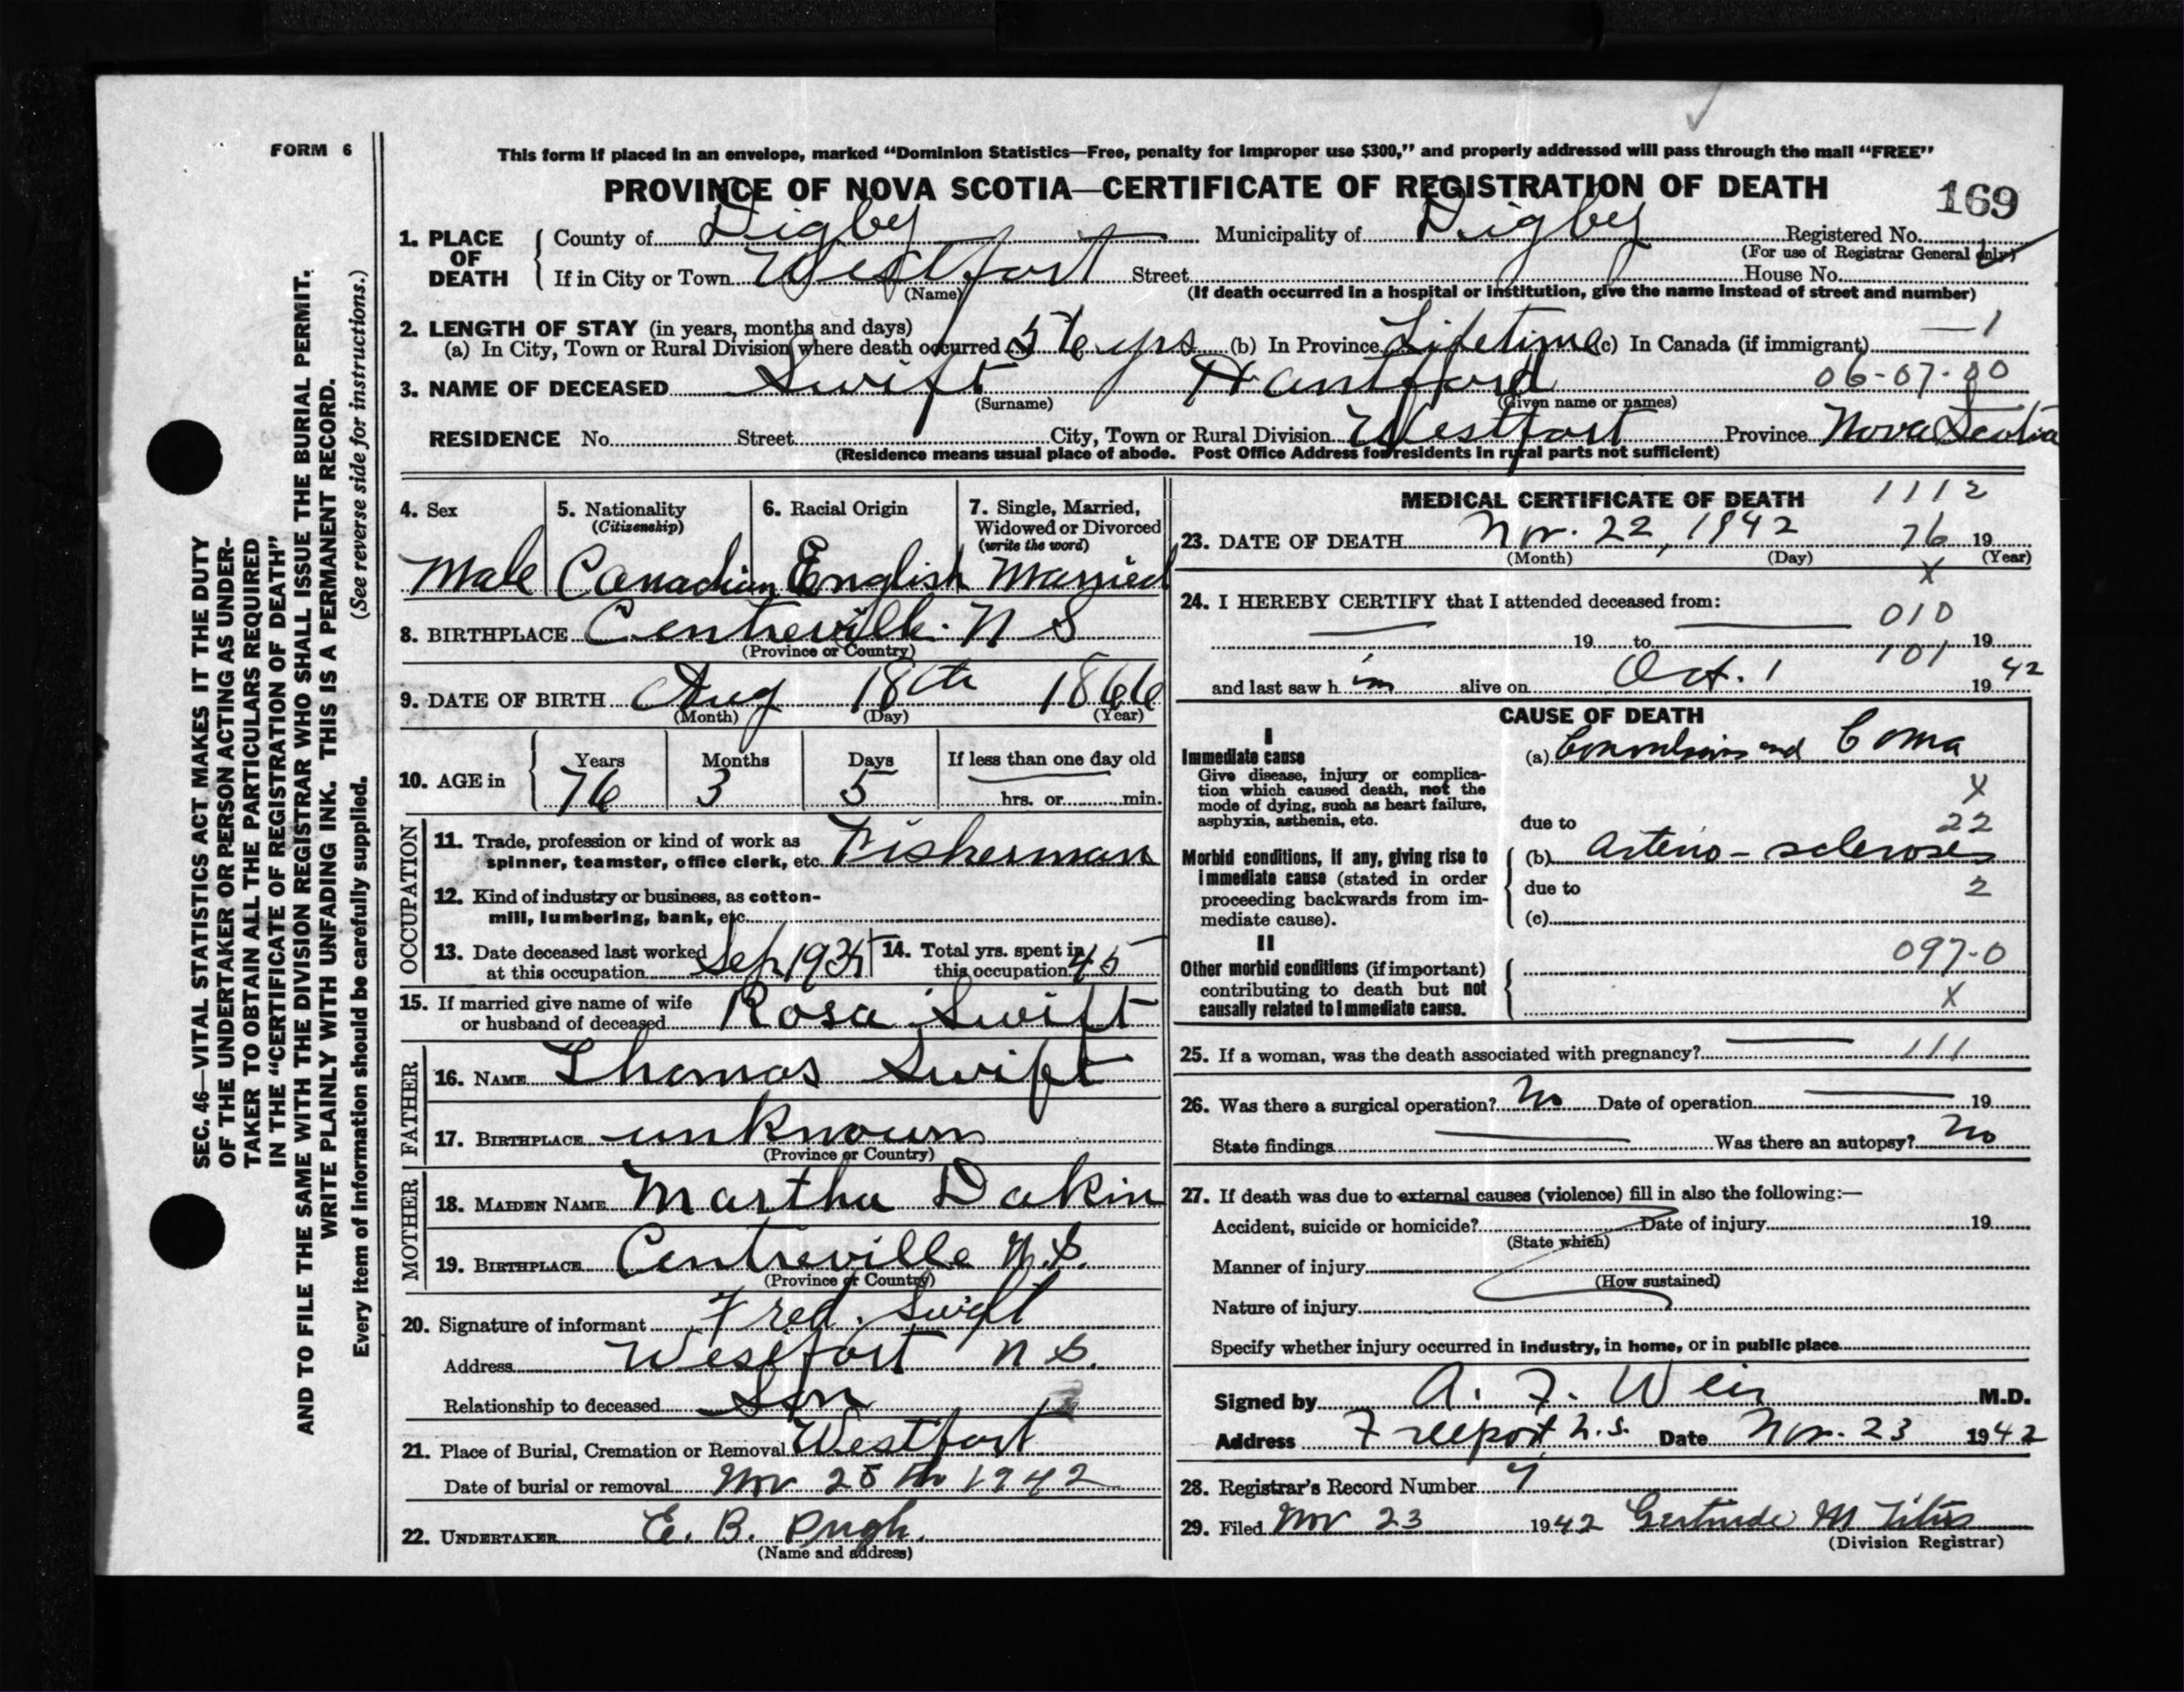 FORM 6
This form if placed in an envelope, marked “Dominion Statistics—Free, penalty for improper use $300,” and properly addressed will pass through the mail “FREE”
PROVINCE OF NOVA SCOTIA—CERTIFICATE OF REGISTRATION OF DEATH
169
1. PLACE OF DEATH
County of Digby Municipality of Digby Registered No.
(For use of Registrar General only)
If in City or Town Westport Street House No.
(Name)
(If death occurred in a hospital or institution, give the name instead of street and number)
2. LENGTH OF STAY (in years, months and days)
(a) In City, Town or Rural Division where death occurred 56 yrs (b) In Province Lifetime (c) In Canada (if immigrant) — 1
3. NAME OF DECEASED Swift Hantford 06-07-00
(Surname) (Given name or names)
RESIDENCE No. Street City, Town or Rural Division Westport Province Nova Scotia
(Residence means usual place of abode. Post Office Address for residents in rural parts not sufficient)
4. Sex
Male
5. Nationality
(Citizenship)
Canadian
6. Racial Origin
English
7. Single, Married,
Widowed or Divorced
(write the word)
Married
8. BIRTHPLACE Centreville. N S
(Province or Country)
9. DATE OF BIRTH Aug 18th 1866
(Month) (Day) (Year)
10. AGE in
Years Months Days If less than one day old
76 3 5 hrs. or min.
OCCUPATION
11. Trade, profession or kind of work as
spinner, teamster, office clerk, etc. Fisherman
12. Kind of industry or business, as cotton-
mill, lumbering, bank, etc.
13. Date deceased last worked
at this occupation Sep 1935
14. Total yrs. spent in
this occupation 45
15. If married give name of wife
or husband of deceased Rosa Swift
FATHER
16. NAME Thomas Swift
17. BIRTHPLACE unknown
(Province or Country)
MOTHER
18. MAIDEN NAME Martha Dakin
19. BIRTHPLACE Centreville N.S.
(Province or Country)
20. Signature of informant Fred. Swift
Address Westport N S.
Relationship to deceased Son
21. Place of Burial, Cremation or Removal Westport
Date of burial or removal Nov 25th 1942
22. UNDERTAKER E. B. Pugh.
(Name and address)
MEDICAL CERTIFICATE OF DEATH 1112
23. DATE OF DEATH Nov. 22, 1942 76 19
(Month) (Day) (Year)
X
24. I HEREBY CERTIFY that I attended deceased from:
010
19 to 19
101
and last saw h im alive on Oct. 1 19 42
CAUSE OF DEATH
I
Immediate cause
Give disease, injury or complica-
tion which caused death, not the
mode of dying, such as heart failure,
asphyxia, asthenia, etc.
(a) Convulsions and Coma
X
due to 22
Morbid conditions, if any, giving rise to
immediate cause (stated in order
proceeding backwards from im-
mediate cause).
(b) Arterio-sclerosis
due to 2
(c)
II
Other morbid conditions (if important)
contributing to death but not
causally related to immediate cause.
097-0
X
25. If a woman, was the death associated with pregnancy? 111
26. Was there a surgical operation? No Date of operation 19
State findings Was there an autopsy? No
27. If death was due to external causes (violence) fill in also the following:—
Accident, suicide or homicide? Date of injury 19
(State which)
Manner of injury
(How sustained)
Nature of injury
Specify whether injury occurred in industry, in home, or in public place
Signed by A. F. Weir M.D.
Address Freeport N.S. Date Nov. 23 1942
28. Registrar's Record Number 7
29. Filed Nov 23 1942 Gertrude M Titus
(Division Registrar)
SEC. 46—VITAL STATISTICS ACT MAKES IT THE DUTY
OF THE UNDERTAKER OR PERSON ACTING AS UNDER-
TAKER TO OBTAIN ALL THE PARTICULARS REQUIRED
IN THE “CERTIFICATE OF DEATH”
AND TO FILE THE SAME WITH THE DIVISION REGISTRAR WHO SHALL ISSUE THE BURIAL PERMIT.
WRITE PLAINLY WITH UNFADING INK. THIS IS A PERMANENT RECORD.
Every item of information should be carefully supplied. (See reverse side for instructions.)